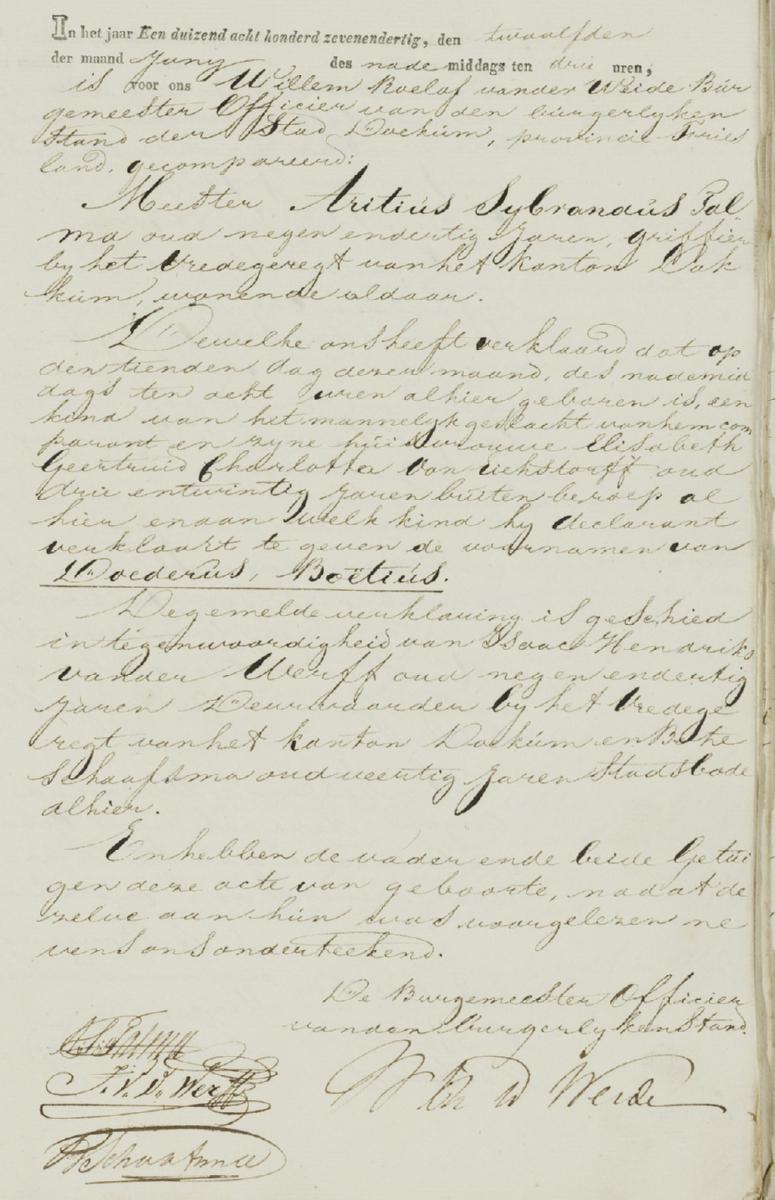 In het jaar Een duizend acht honderd zevenendertig, den twaalfden
der maand Juny des nade middags ten drie uren,
is voor ons Willem Roelof vander Weide Bur
gemeester Officier van den burgerlyken
Stand der Stad Dockum, provincie Fries
land, gecompareerd:
Meester Aritius Sybrandus Tal
ma oud negen endertig Jaren, griffier
by het Vredegeregt van het kanton Dok
kum, wonende aldaar.
Dewelke ons heeft verklaard dat op
den tienden dag dezer maand, des nademid
dags ten acht uren alhier geboren is, een
kind van het mannelyk geslacht van hem com
parant en zyne huisvrouwe Elisabeth
Geertruid Charlotta Von
drie entwintig Jaren buiten beroep al
hier enaan welk kind hy declarant
verklaart te geven de voornamen van
Doederus, Boëtius.
Degemelde verklaring is geschied
in tegenwoordigheid van Isaac Hendriks
vander Werff oud negen endertig
Jaren Deurwaarder by het Vredege
regt van het kanton Dockum en Bote
Schaafsma oud veertig Jaren Stadsbode
alhier.
En hebben de vader ende beide Getui
gen deze acte van geboorte, na dat de
zelve aan hun was voorgelezen ne
vens ons onderteekend.
De Burgemeester Officier
van den Burgerlyken Stand.
A. S. Talma
I. V. D. Werff
W R v d Weide
B Schaafsma